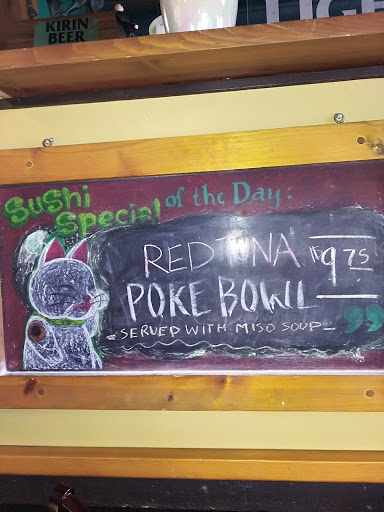 KIRIN
BEER
Sushi
Special of the Day:
RED TUNA
9.75
POKE BOWL
SERVED WITH MISO SOUP